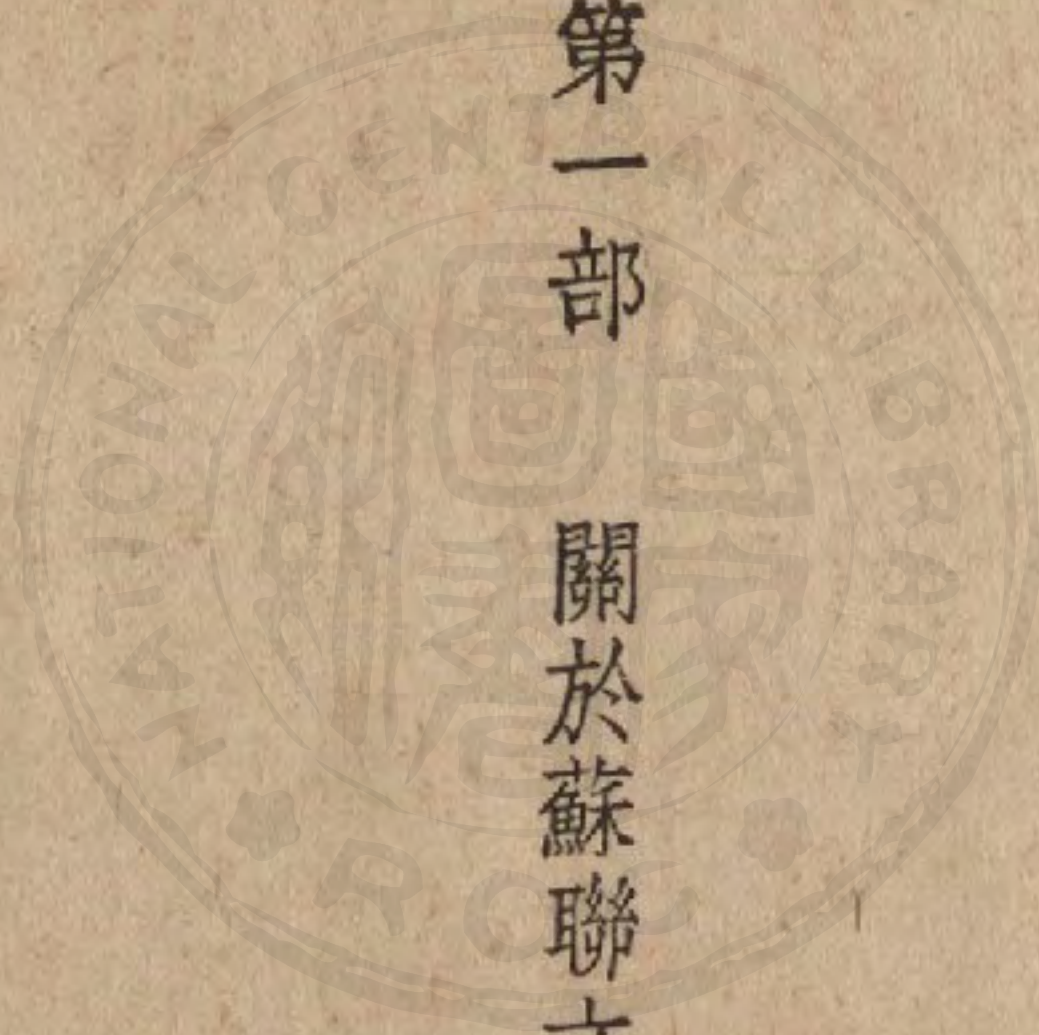 第一部 關於蘇聯
NATIONAL CENTRAL LIBRARY
R.O.C.